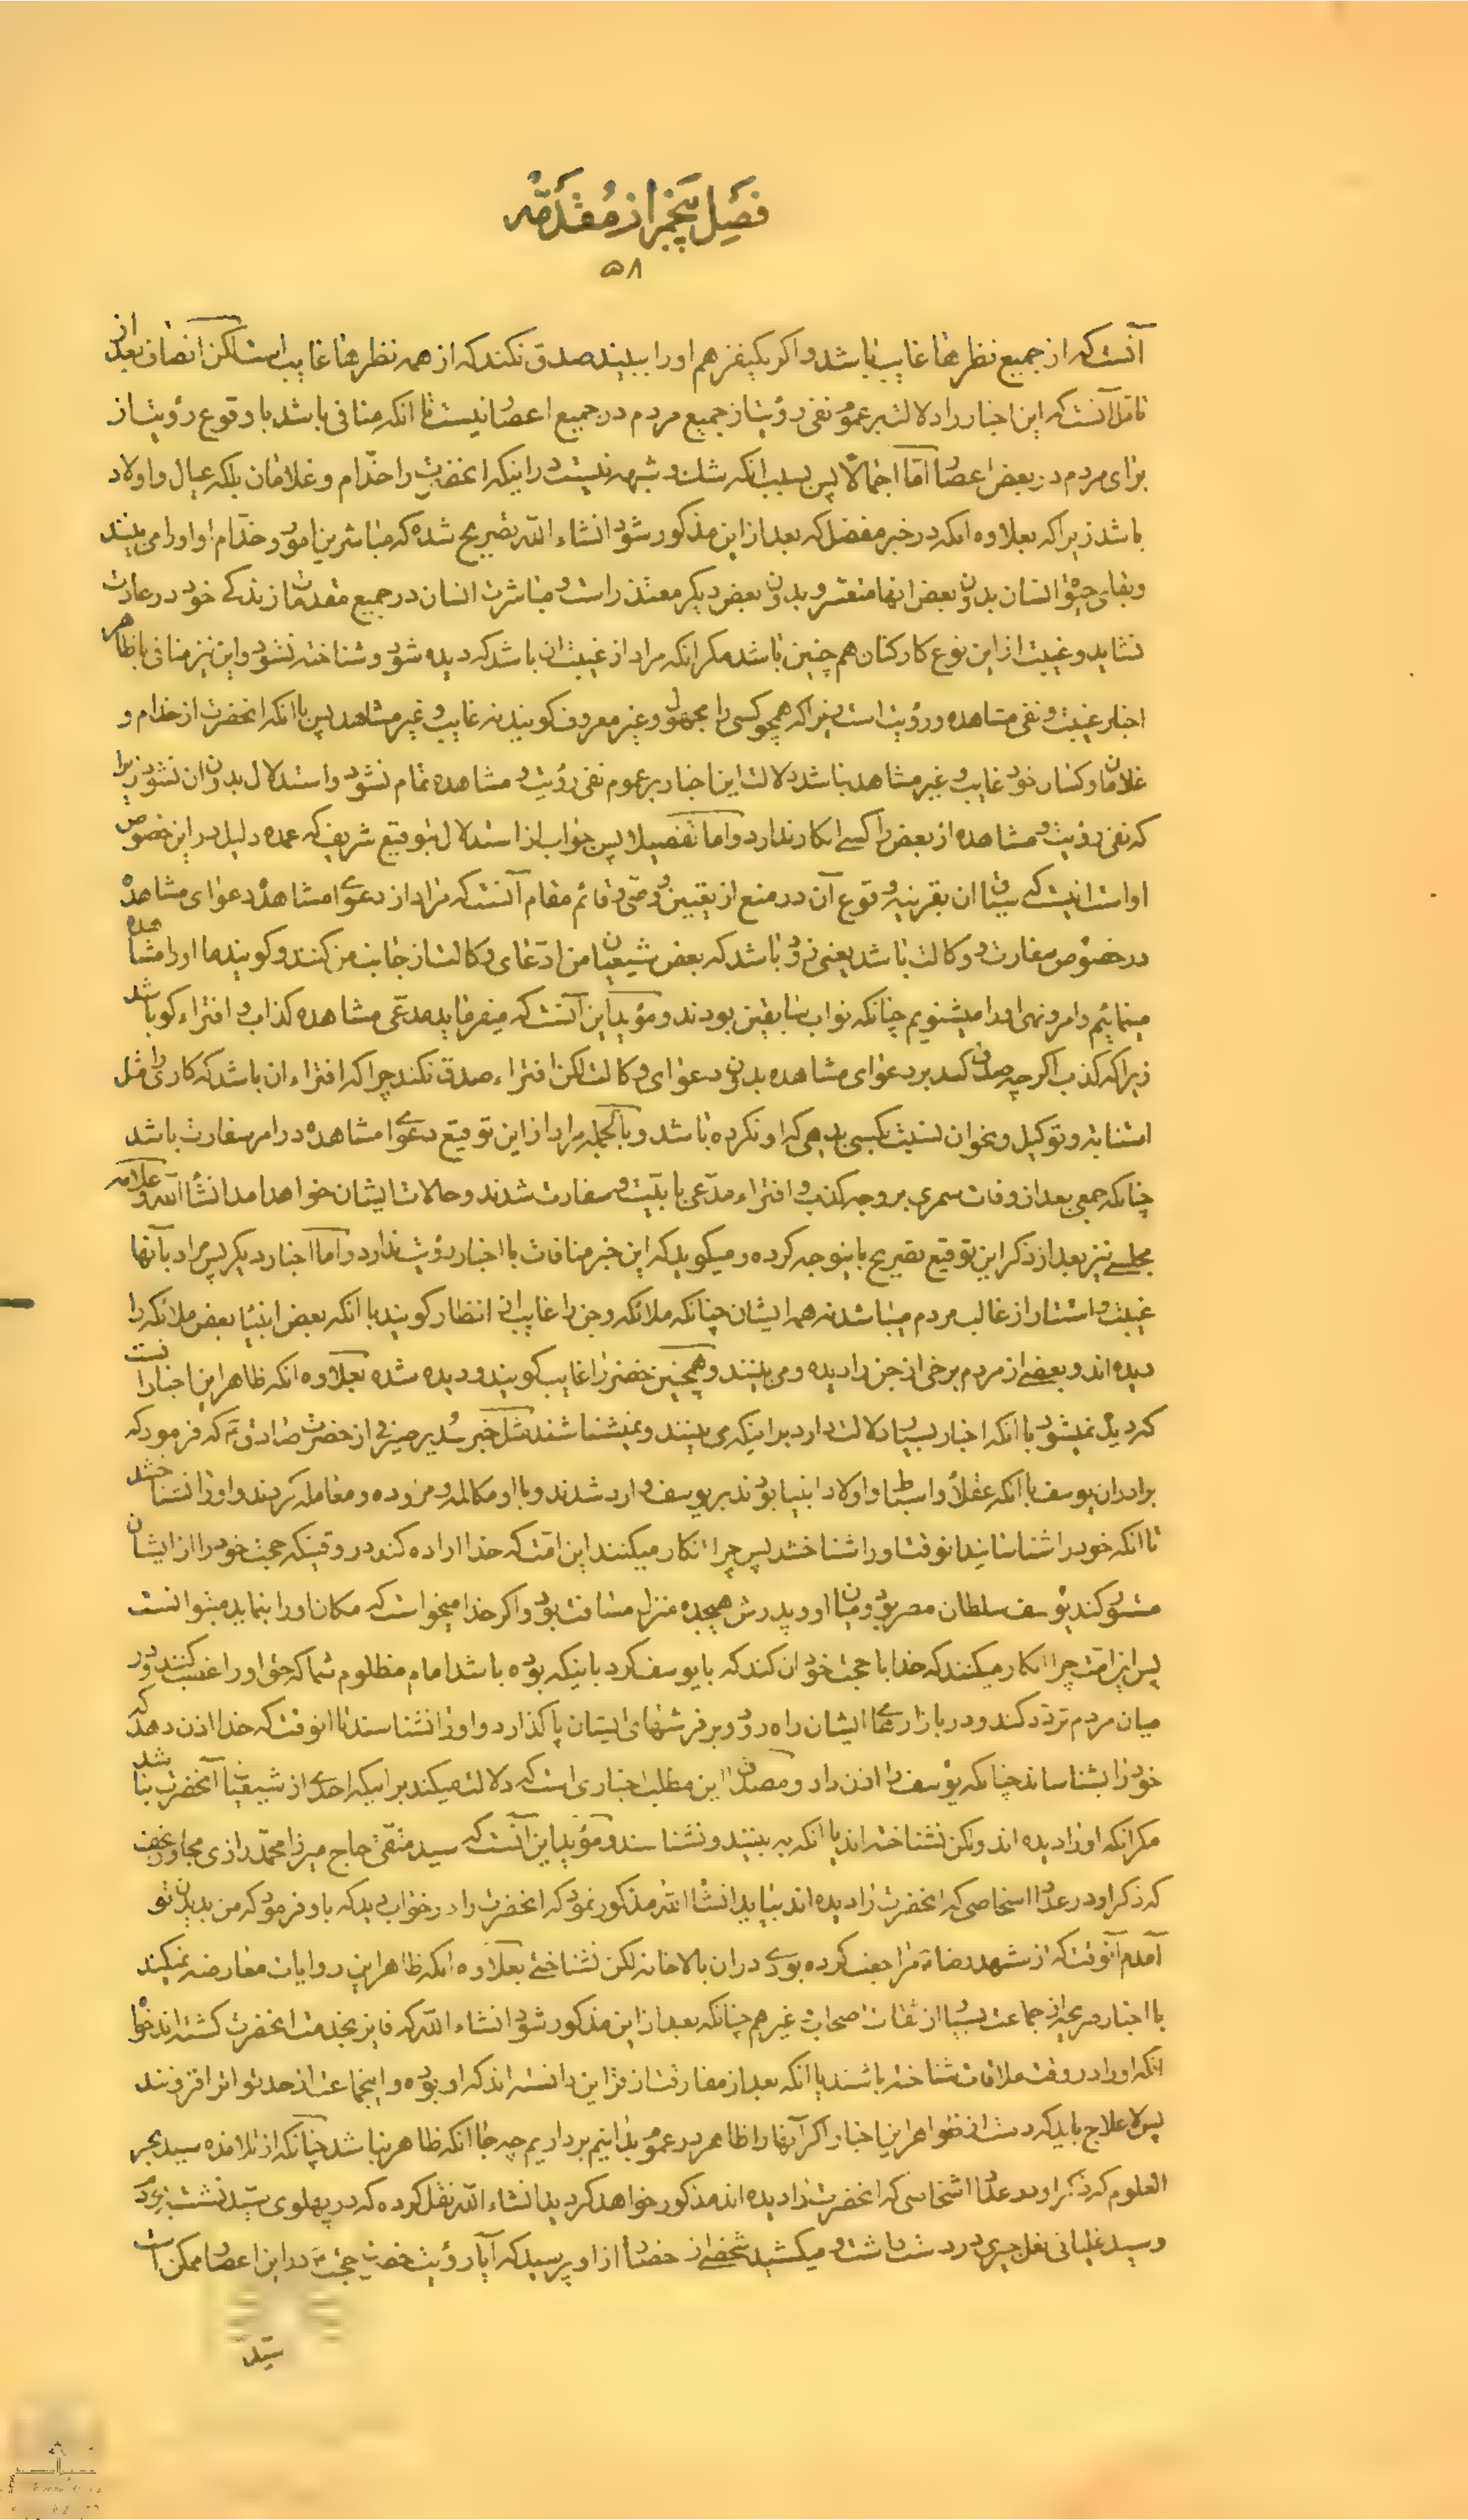 فصل پنجم از مقدمه
۵۸
آنست که از جمیع نظرها غایب باشد و اگر یکنفر هم او را ببیند صدق نکند که از همه نظرها غایب است لکن انصاف بعد از
تامل آنست که این اخبار را دلالت بر عموم نفی رؤیت از جمیع مردم در جمیع اعصار نیست تا انکه منافی باشد با وقوع رؤیت از
برای مردم در بعض اعصار اما اجمالا پس بسبب انکه شک و شبهه نیست در اینکه انحضرت را خدّام و غلامان بلکه عیال و اولاد
باشد زیرا که بعلاوه انکه در خبر مفضل که بعد از این مذکور شود انشاء الله تصریح شده که مباشرین امور و خدّام او او را می بینند
و بقای حیوة انسان بدون بعض انها متعسر و بدون بعض دیگر متعذر است و مباشرت انسان در جمیع مقدمات زندگی خود در عادت
نشاید و غیبت از این نوع کارکنان هم چنین باشد مگر انکه مراد از غیبت ان باشد که دیده شود و شناخته نشود و این نیز منافی با ظاهر
اخبار غیبت و نفی مشاهده و رؤیت است زیرا که همچو کسی را مجهول و غیر معروف گویند نه غایب و غیر مشاهد پس با انکه انحضرت از خدام و
غلامان و کسان خود غایب و غیر مشاهد نباشد دلالت این اخبار بر عموم نفی رؤیت و مشاهده تمام نشود و استدلال بدون ان نشود زیرا
که نفی رؤیت و مشاهده از بعض را کسی انکار ندارد و اما تفصیلا پس جواب از استدلال بتوقیع شریف که عمده دلیل در این خصوص
او است انیست که سیاق ان بقرینه وقوع آن در منع از تعیین وصی و قائم مقام آنست که مراد از دعوای مشاهده دعوای مشاهده
در خصوص سفارت و وکالت باشد یعنی زود باشد که بعض شیعیان من ادّعای وکالت از جانب من کنند و گویند ما او را مشاهده
مینمائیم و امر و نهی او را میشنویم چنانکه نواب سابقین بودند و مؤید این آنست که میفرماید مدّعی مشاهده کذاب و افتراء گو باشد
زیرا که کذب اگر چه صدق کند بر دعوای مشاهده بدون دعوای وکالت لکن افتراء صدق نکند چرا که افتراء ان باشد که کاری را مثل
استنابه و توکیل و نحو ان نسبت بکسی بدهی که او نکرده باشد و بالجمله مراد از این توقیع دعوای مشاهده در امر سفارت باشد
چنانکه جمعی بعد از وفات سمری بر وجه کذب و افتراء مدّعی بابیّت و سفارت شدند و حالات ایشان خواهد امد انشاء الله و علامه
مجلسی نیز بعد از ذکر این توقیع تصریح باینوجه کرده و میگوید که این خبر منافات با اخبار رؤیت ندارد و اما اخبار دیگر پس مراد بآنها
غیبت و استتار از غالب مردم میباشد نه همه ایشان چنانکه ملائکه و جن را غایب از انظار گویند با انکه بعض انبیا بعض ملائکه را
دیده اند و بعضی از مردم برخی از جن را دیده و می بینند و همچنین خضر را غایب گویند و دیده شده بعلاوه انکه ظاهر این اخبار انست
که دیده نمیشود با انکه اخبار بسیار دلالت دارد بر اینکه می بینند و نمیشناسند مثل خبر سُدیر صیرفی از حضرت صادق ع که فرمود که
برادران یوسف با انکه عقلا و اسباط و اولاد انبیا بودند بر یوسف وارد شدند و با او مکالمه و مزوده و معامله کردند و او را نشناختند
تا انکه خود را شناسانید انوقت او را شناختند پس چرا انکار میکنند این امّت که خدا اراده کند در وقتیکه حجت خود را از ایشان
مستور کند یوسف سلطان مصر بود و میان او و پدرش هیجده منزل مسافت بود و اگر خدا میخواست که مکان او را بنماید میتوانست
پس این امّت چرا انکار میکنند که خدا با حجت خود ان کند که با یوسف کرد باینکه بوده باشد امام مظلوم شما که حق او را غصب کنند و در
میان مردم تردّد کند و در بازارهای ایشان راه رود و بر فرشهای ایشان پا گذارد و او را نشناسند تا انوقت که خدا اذن دهد که
خود را بشناساند چنانکه یوسف را اذن داد و مصدق این مطلب اخباری است که دلالت میکند بر اینکه احدی از شیعیان آنحضرت نباشد
مگر انکه او را دیده اند ولکن نشناخته اند یا انکه به بینند و نشناسند و مؤید این آنست که سید متّقی حاج میرزا محمّد رازی مجاور نجف
که ذکر او در عداد اشخاصی که انحضرت را دیده اند بیاید انشاء الله مذکور نمود که انحضرت را در خواب دید که باو فرمود که من بدیدن تو
آمدم آنوقت که از مشهد رضا ع مراجعت کرده بودی در ان بالاخانه لکن نشناختی بعلاوه انکه ظاهر این روایات معارضه نمیکند
با اخبار صریحه از جماعت بسیار از ثقات اصحاب و غیر هم چنانکه بعد از این مذکور شود انشاء الله که فایز بخدمت انحضرت گشته اند خواه
انکه او را در وقت ملاقات شناخته باشند یا انکه بعد از مفارقت از قراین دانسته اند که او بوده و اینجماعت از حد تواتر افزونند
پس لاعلاج باید که دست از ظواهر این اخبار اگر آنها را ظاهر در عموم بدانیم برداریم چه جا انکه ظاهر نباشد چنانکه از تلامذه سید بحر
العلوم که ذکر او در عداد اشخاصی که انحضرت را دیده اند مذکور خواهد گردید انشاء الله نقل کرده که در پهلوی سیّد نشسته بودم
و سید غلیانی در دست داشت و میکشید شخصی از حضار از او پرسید که آیا رؤیت حضرت حجّت ع در این اعصار ممکن است
سیّد